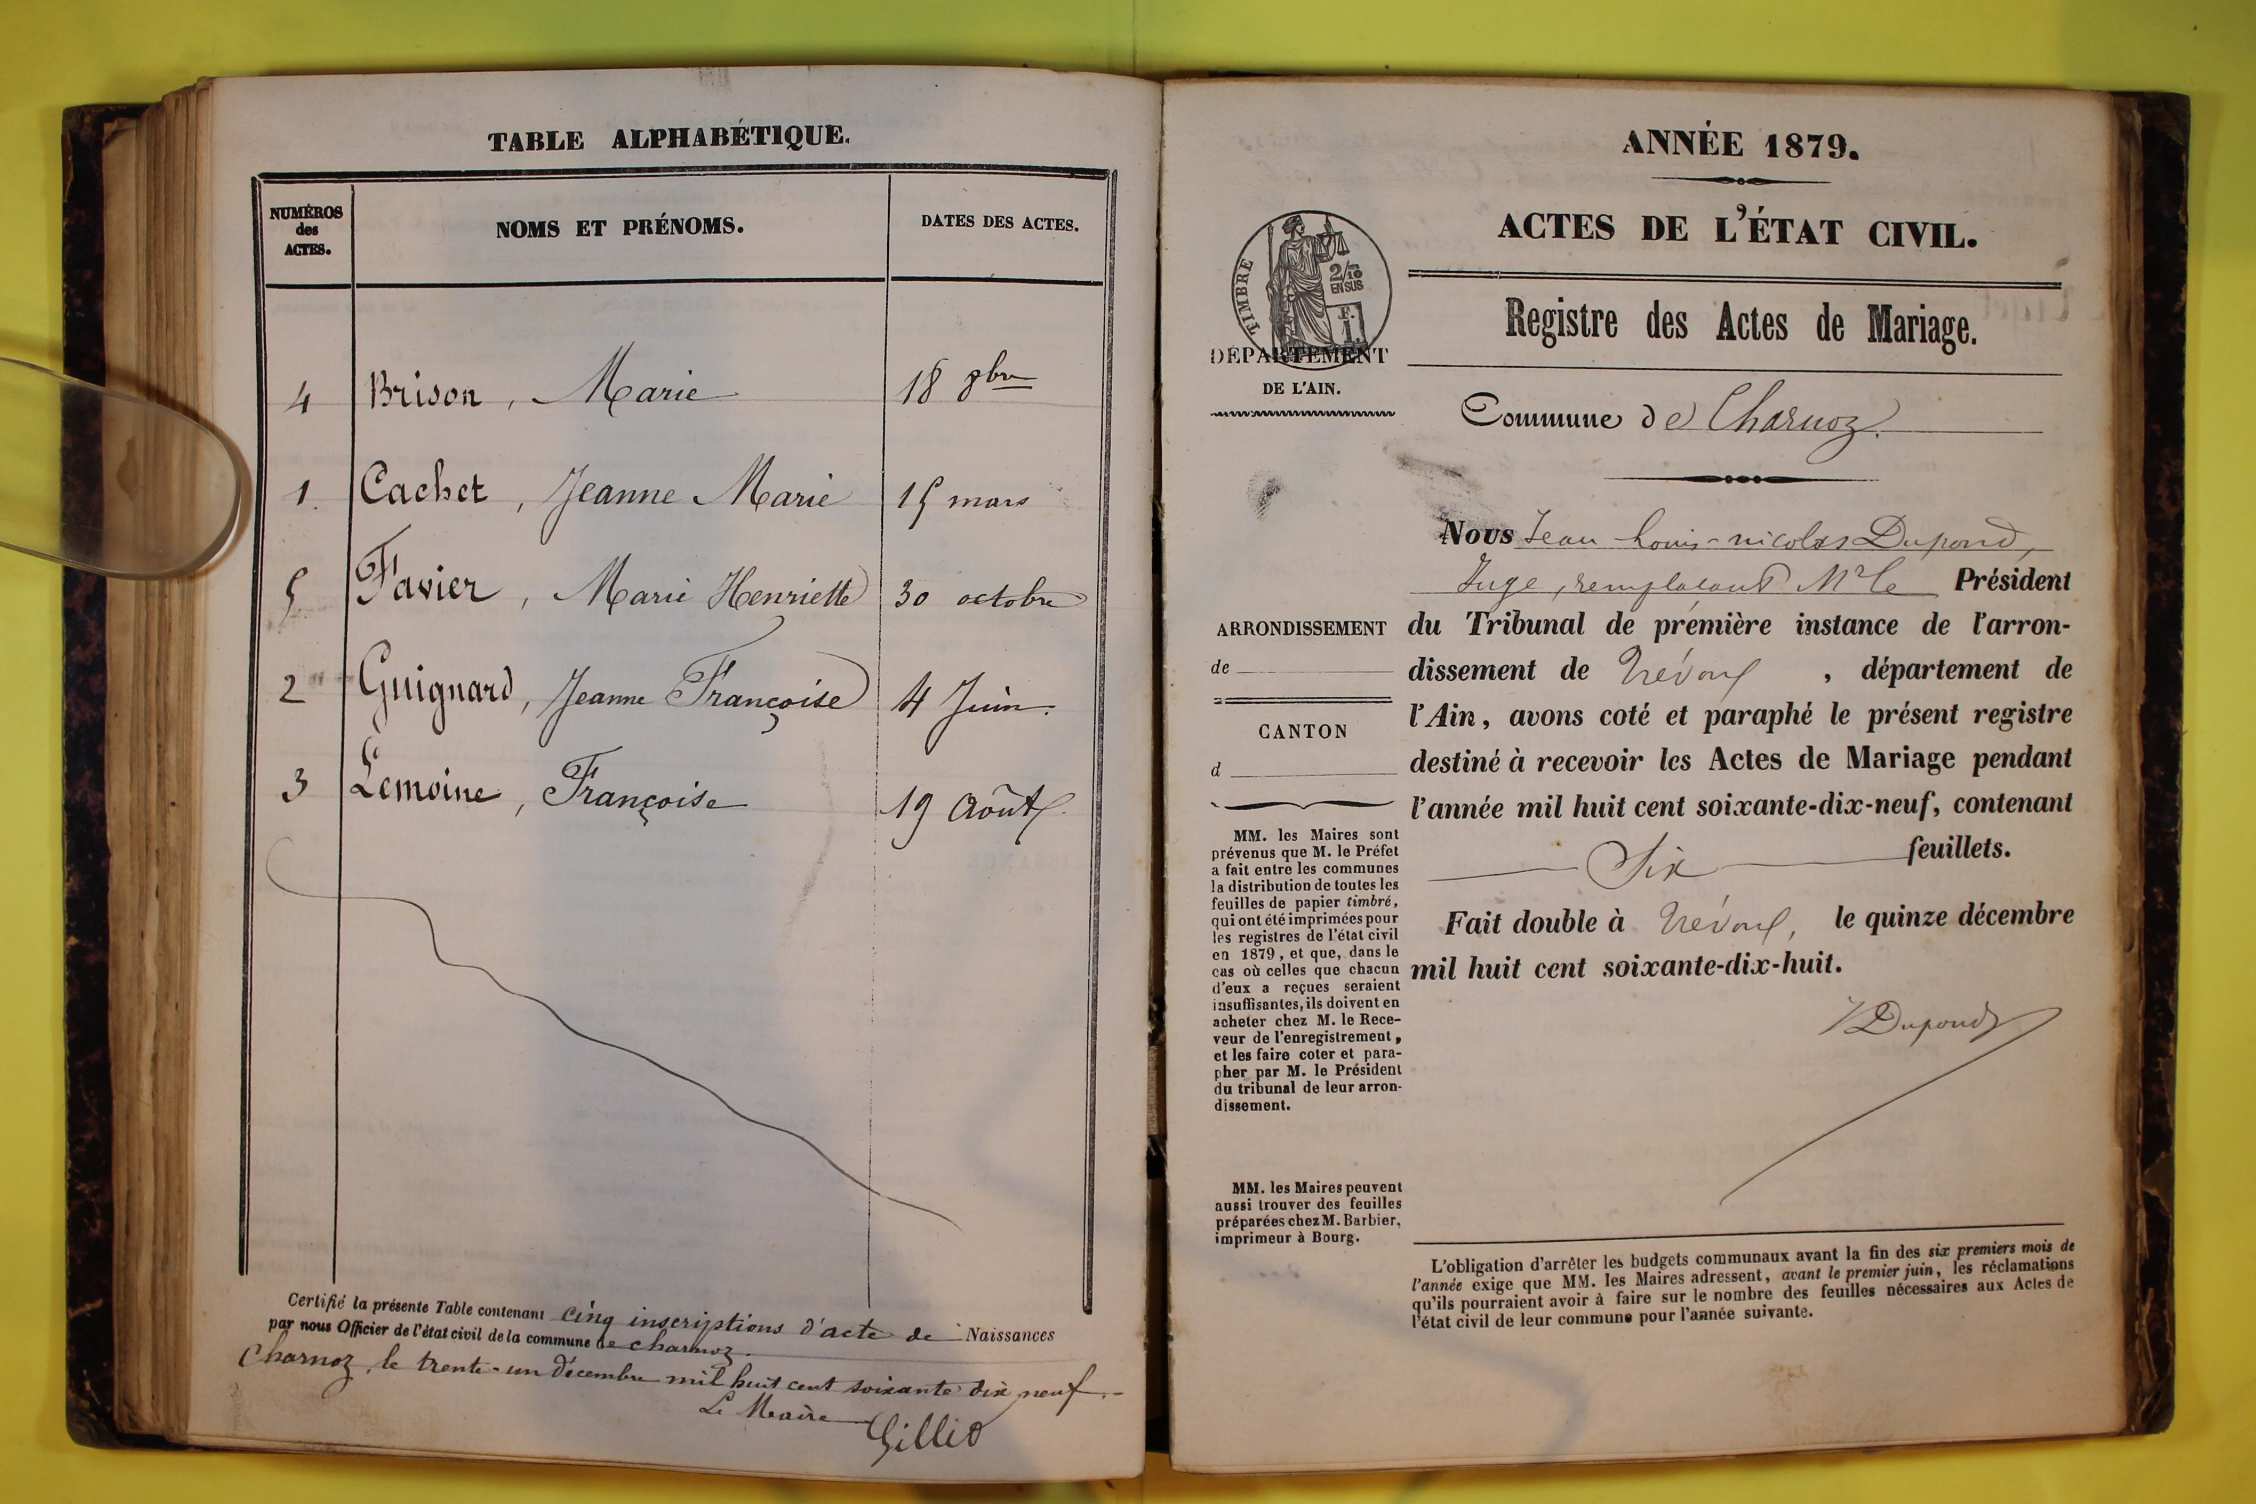 TABLE ALPHABÉTIQUE.
NUMÉROS
des
ACTES.
NOMS ET PRÉNOMS.
DATES DES ACTES.
4 Brison, Marie 18 8bre
1. Cachet, Jeanne Marie 15 mars
5 Favier, Marie Henriette 30 octobre
2 Guignard, Jeanne Françoise 4 Juin.
3 Lemoine, Françoise 19 Août.
Certifié la présente Table contenant cinq inscriptions d'acte de Naissances
par nous Officier de l'état civil de la commune de charnoz.
Charnoz, le trente-un décembre mil huit cent soixante dix neuf.-
Le Maire Gillio
ANNÉE 1879.
ACTES DE L'ÉTAT CIVIL.
TIMBRE
2/10
EN SUS
F.
1
DÉPARTEMENT
DE L'AIN.
Registre des Actes de Mariage.
Commune de Charnoz.
ARRONDISSEMENT
de
CANTON
d
MM. les Maires sont
prévenus que M. le Préfet
a fait entre les communes
la distribution de toutes les
feuilles de papier timbré,
qui ont été imprimées pour
les registres de l'état civil
en 1879, et que, dans le
cas où celles que chacun
d'eux a reçues seraient
insuffisantes, ils doivent en
acheter chez M. le Rece-
veur de l'enregistrement,
et les faire coter et para-
pher par M. le Président
du tribunal de leur arron-
dissement.
MM. les Maires peuvent
aussi trouver des feuilles
préparées chez M. Barbier,
imprimeur à Bourg.
Nous Jean-Louis-nicolas Dupond,
Juge, remplaçant Mr le Président
du Tribunal de prémière instance de l'arron-
dissement de Trévoux, département de
l'Ain, avons coté et paraphé le présent registre
destiné à recevoir les Actes de Mariage pendant
l'année mil huit cent soixante-dix-neuf, contenant
Six feuillets.
Fait double à Trévoux, le quinze décembre
mil huit cent soixante-dix-huit.
Dupond
L'obligation d'arrêter les budgets communaux avant la fin des six premiers mois de
l'année exige que MM. les Maires adressent, avant le premier juin, les réclamations
qu'ils pourraient avoir à faire sur le nombre des feuilles nécessaires aux Actes de
l'état civil de leur commune pour l'année suivante.